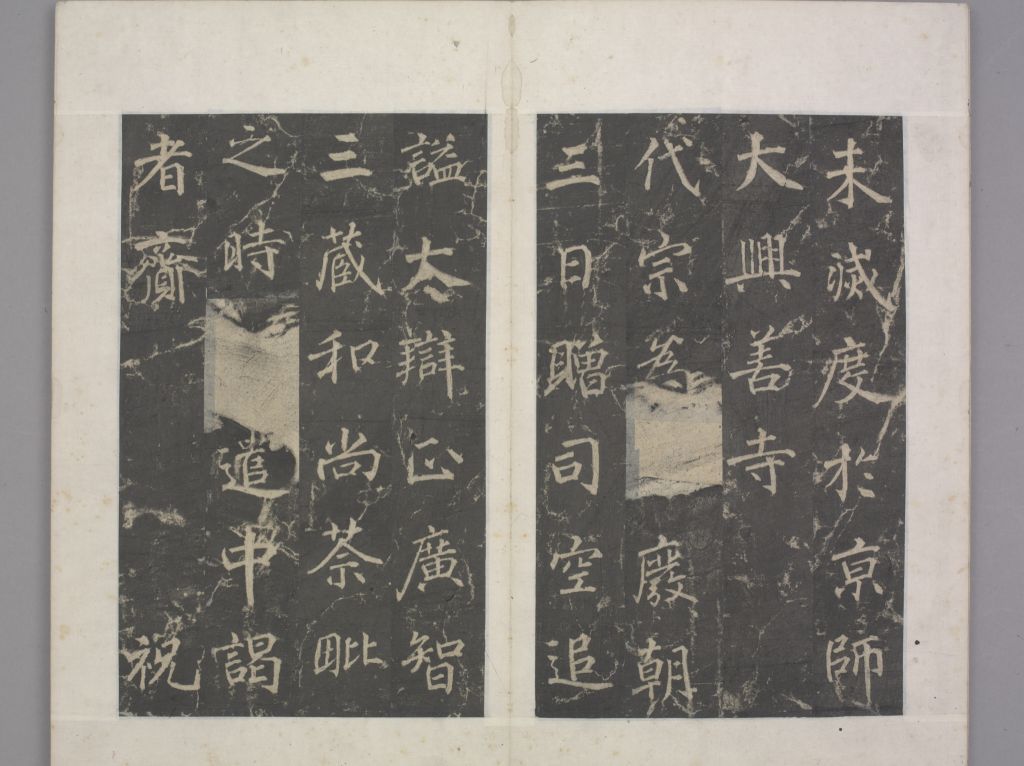 未滅度於亰師
大興善寺
代宗為廢朝
三日贈司空追
謚大辯正廣智
三蔵和尚荼毗
之時遣中謁
者齎祝